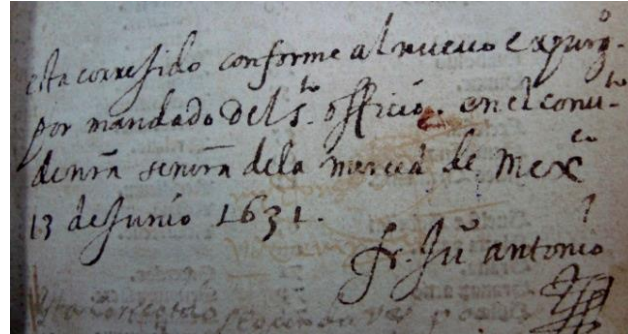 esta corregido conforme al nuevo expurg.º
por mandado del s.to officio. en el conu.to
de nra senora de la merced de Mex.co
13 de Junio 1631.
fr. Ju.º antonio